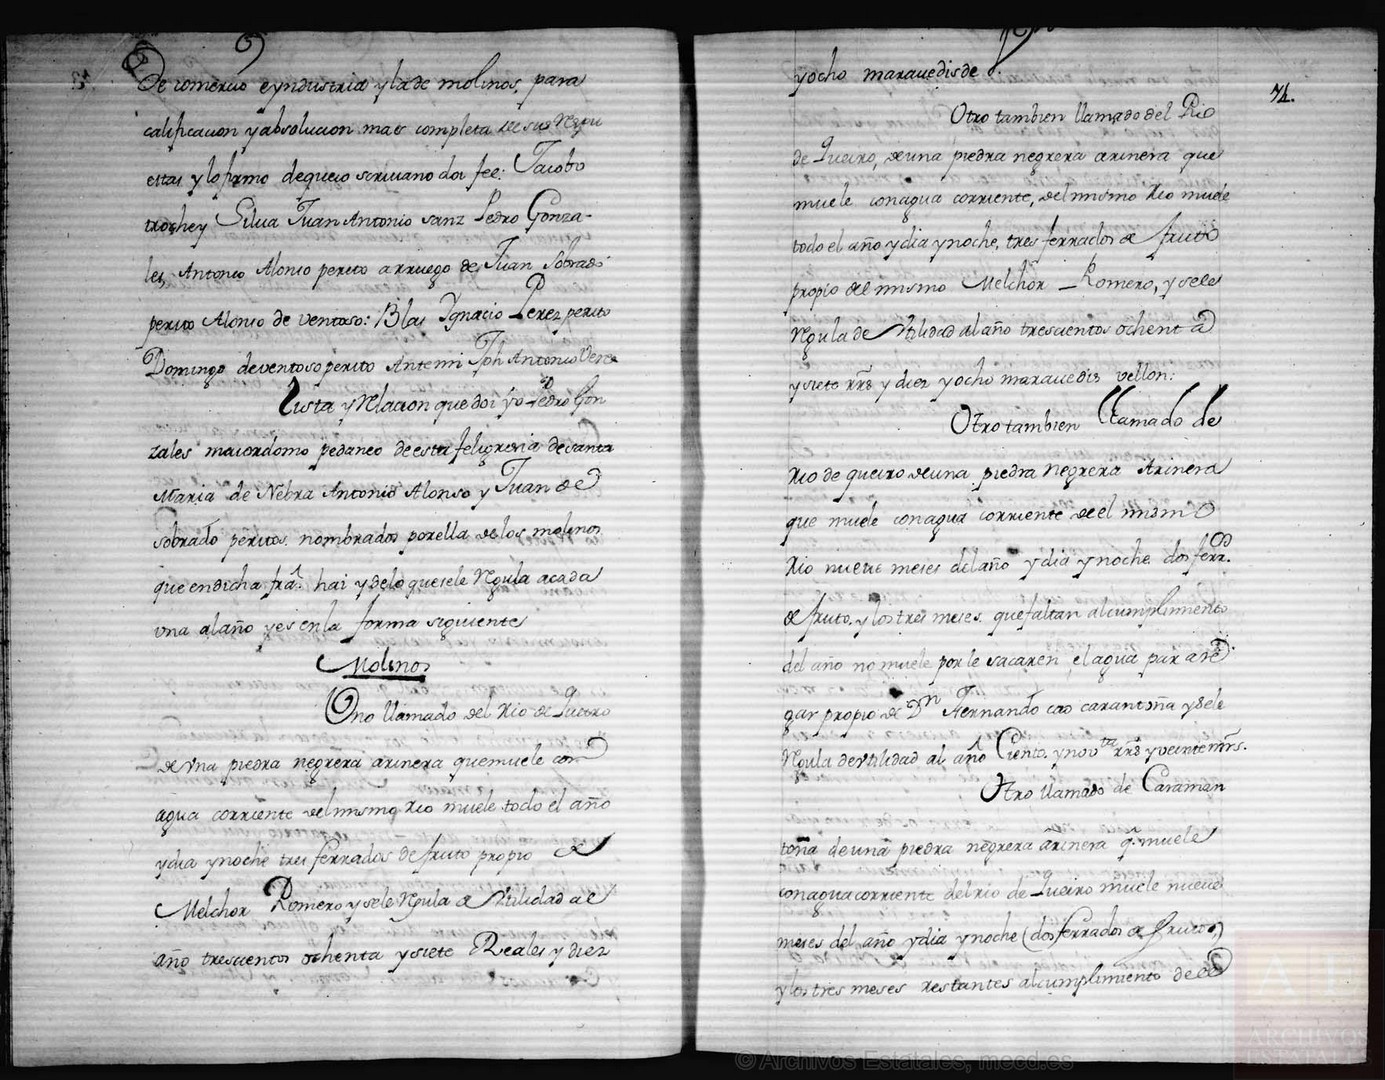 De comercio eyndustria y la de molinos, para
calificacion y absolucion mas completa de sus Respu
estas y lo firmo de que io scrivano doi fee: Jacobo
trochey Silva Juan Antonio sanz Pedro Gonza-
les, Antonio Alonso perito a rruego de Juan Sobrado
perito Alonso de ventoso: Blas Ygnacio Perez perito
Domingo de ventoso perito Antemi Jph Antonio
Lista y Relacion que doi yo Pedro Gon
zales maiordomo pedaneo de esta feligresia de santa
Maria de Nebra Antonio Alonso y Juan de
sobrado peritos nombrados por ella de los molinos
que en dicha fra. hai y de lo que se le Regula a cada
una al año y es en la forma siguiente
Molinos
Uno llamado del Rio de Queiro
de una piedra negrera arinera que muele con
agua corriente del mismo Rio muele todo el año
y dia y noche tres ferrados de fruto propio de
Melchor Romero y se le Regula de Utilidad al
año trescientos ochenta y siete Reales y diez
y ocho maravedis de v.
74.
Otro tambien llamado del Rio
de Queiro, de una piedra negrera arinera que
muele con agua corriente, del mismo Rio muele
todo el año y dia y noche, tres ferrados de fruto
propio del mismo Melchor Romero, y se le
Regula de Utilidad al año trescientos ochenta
y siete rrs y diez y ocho maravedis vellon:
Otro tambien llamado de
Rio de queiro de una piedra negrera Arinera
que muele con agua corriente de el mismo
Rio nueve meses del año y dia y noche dos ferr.os
de fruto, y los tres meses que faltan al cumplimento
del año no muele por le sacaren, el agua para re
gar propio de Dn Fernando cao carantoña y se le
Regula de utilidad al año Ciento y nov.ta rrs y veinte mrs.
Otro llamado de Caraman
toña de una piedra negrera arinera q. muele
con agua corriente del rio de Queiro muele nueve
meses del año y dia y noche (dos ferrados de fruto,)
y los tres meses restantes al cumplimiento de el
© Archivos Estatales, mecd.es
AE
ARCHIVOS
ESTATALES